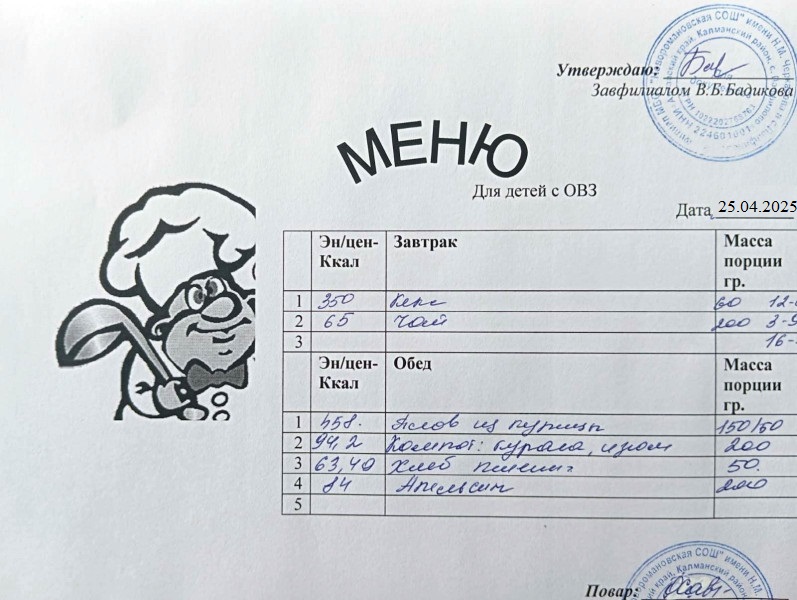 Утверждаю:
Завфилиалом В.Б.Бадикова
МЕНЮ
Для детей с ОВЗ
Дата 25.04.2025
Эн/цен-Ккал Завтрак Масса порции гр.
1 350 Кекс 60 12-
2 65 Чай 200 3-
3 16-
Эн/цен-Ккал Обед Масса порции гр.
1 458. Плов из курицы 150/50
2 94,2 Компот: курага, изюм 200
3 63,40 Хлеб пшенич 50.
4 84 Апельсин 200
5
Повар: